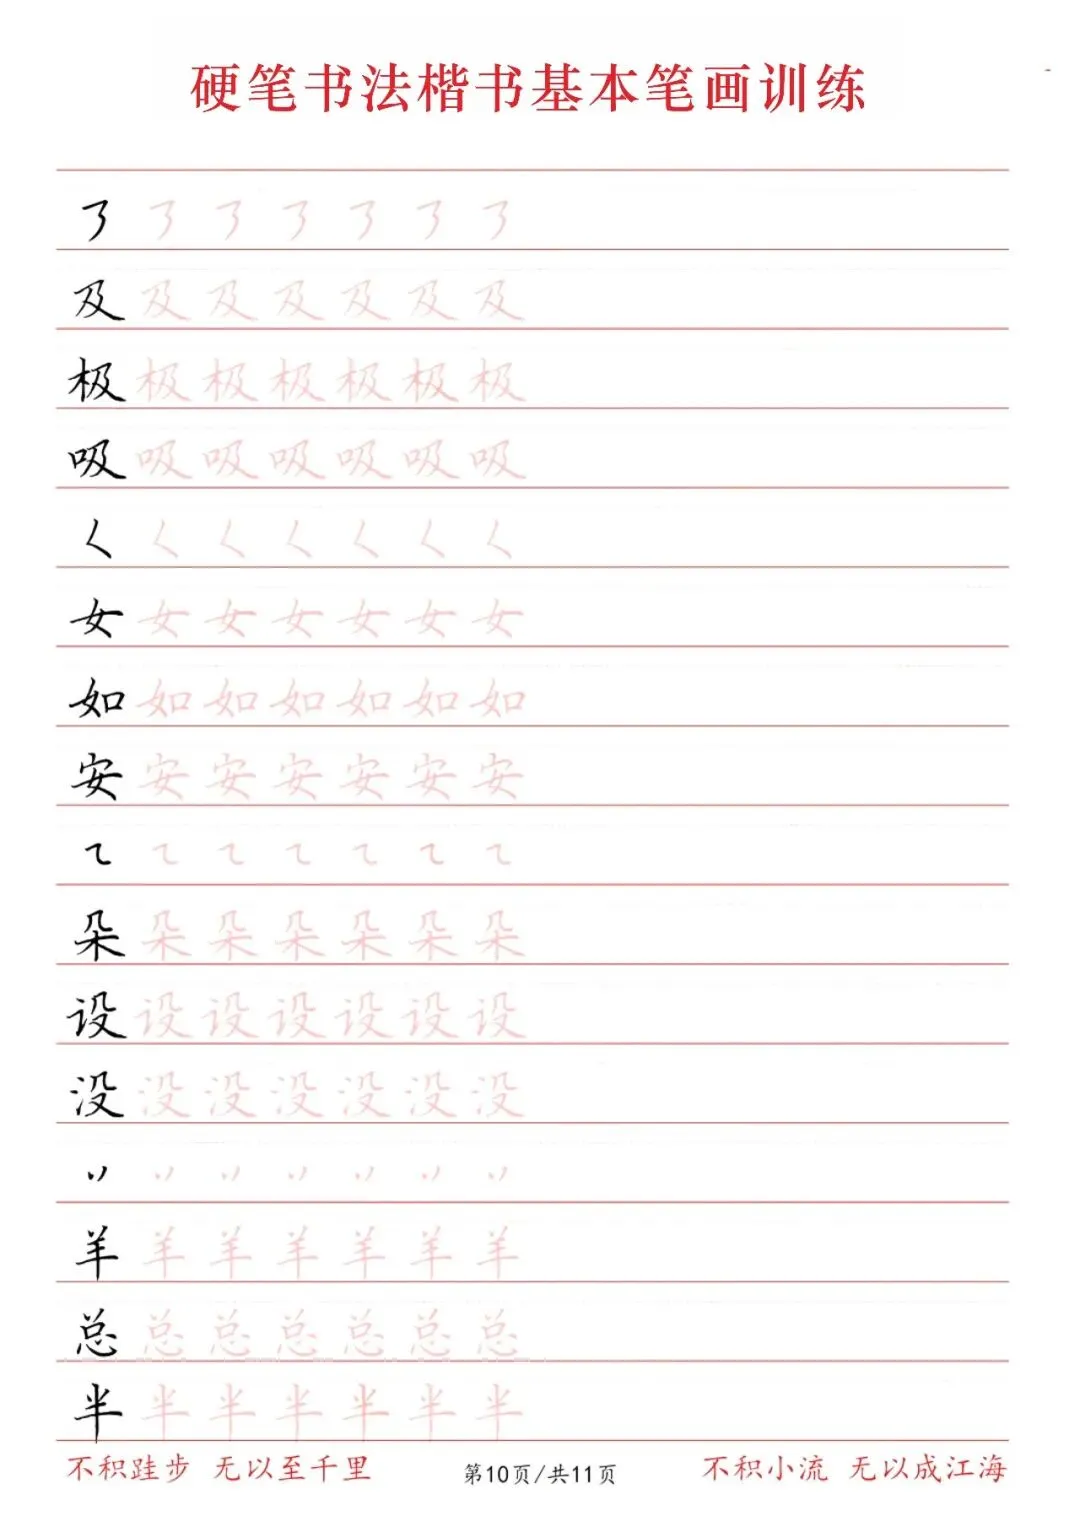 硬笔书法楷书基本笔画训练
㇋ ㇋ ㇋ ㇋ ㇋ ㇋ ㇋
及 及 及 及 及 及 及
极 极 极 极 极 极 极
吸 吸 吸 吸 吸 吸 吸
𡿨 𡿨 𡿨 𡿨 𡿨 𡿨 𡿨
女 女 女 女 女 女 女
如 如 如 如 如 如 如
安 安 安 安 安 安 安
㇍ ㇍ ㇍ ㇍ ㇍ ㇍ ㇍
朵 朵 朵 朵 朵 朵 朵
设 设 设 设 设 设 设
没 没 没 没 没 没 没
丷 丷 丷 丷 丷 丷 丷
羊 羊 羊 羊 羊 羊 羊
总 总 总 总 总 总 总
半 半 半 半 半 半 半
不积跬步 无以至千里 第10页/共11页 不积小流 无以成江海